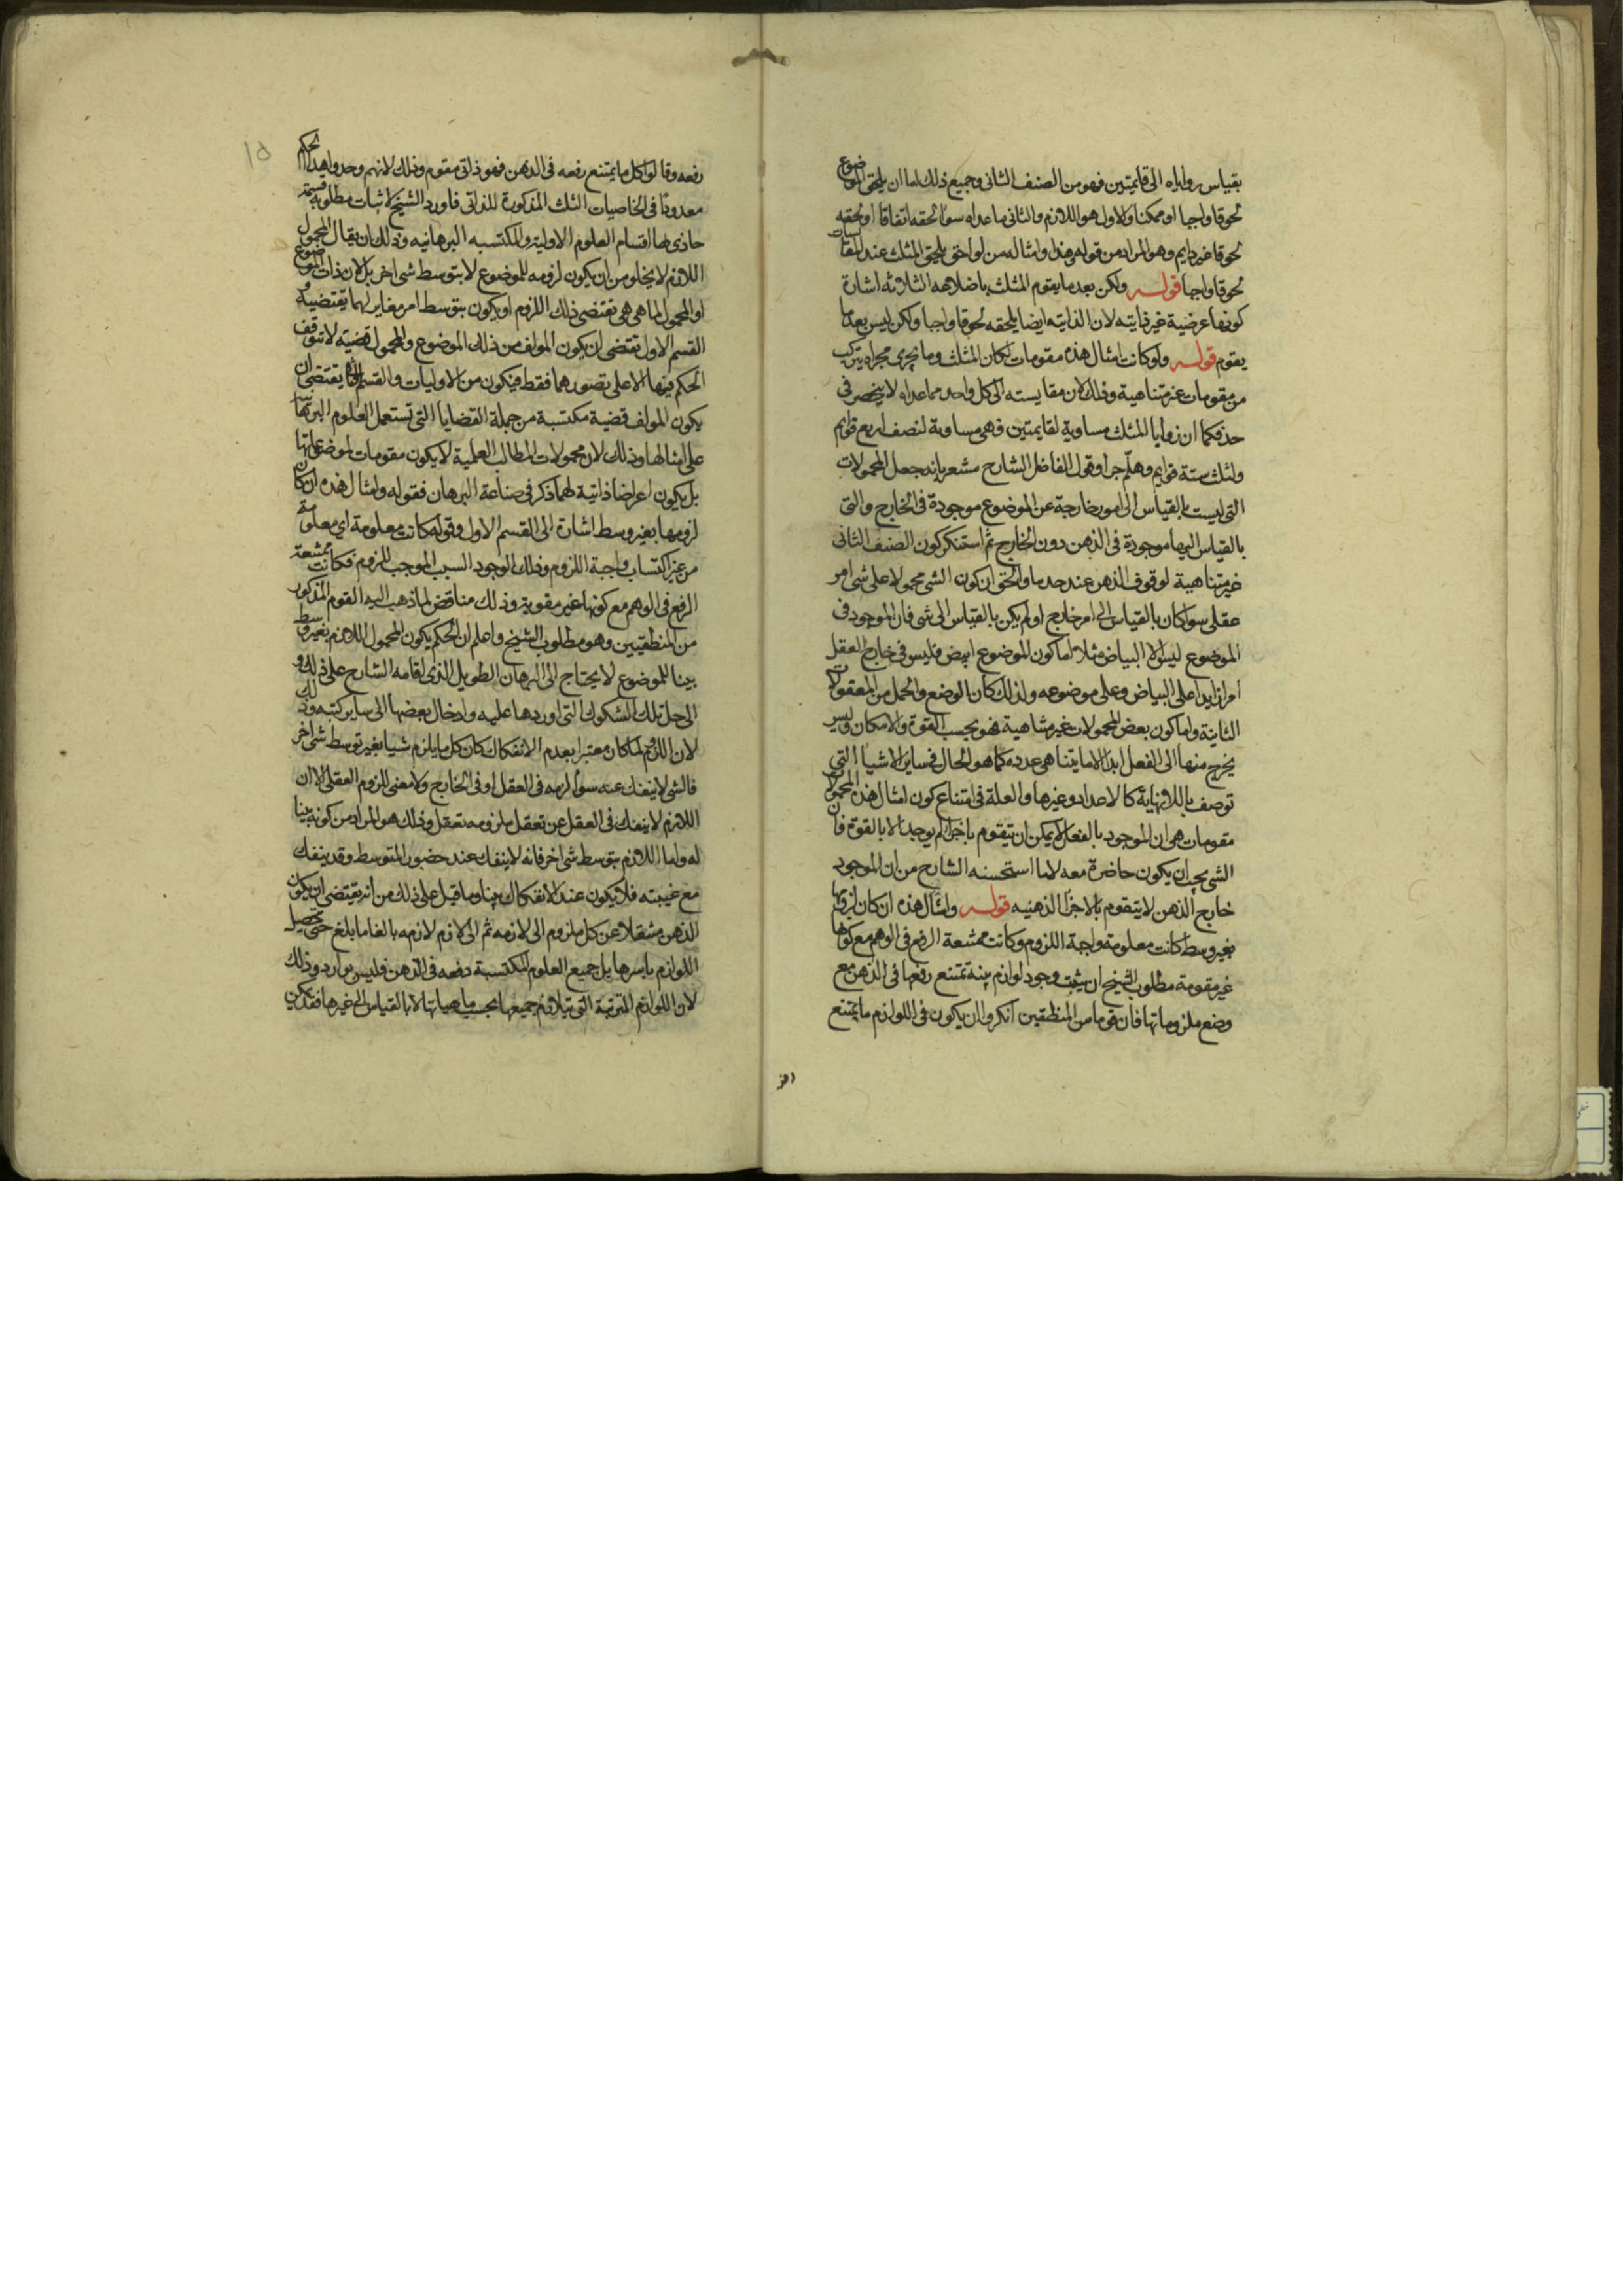 بقياس زواياه الى قايمتين فهو من الصنف الثانى وجميع ذلك اما ان يلحق الموضوع
لحوقا واجبا او ممكنا والاول هو اللازم والثانى ما عداه سوا لحقه اتفاقا او لحقه
لحوقا غير دايم وهو المراد من قوله وهذا وامثاله من لواحق يلحق المثلث عند المقايسات
لحوقا واجبا قوله ولكن بعد ما يقوم المثلث باضلاعه الثلاثه اشارة
كونها عرضية غير ذايته لان الذايته ايضا يلحقه لحوقا واجبا ولكن ليس بعد ما
يقوم قوله ولو كانت امثال هذه مقومات لكان المثلث وما يجرى مجراه يتركب
من مقومات غير متناهية وذلك لان مقايسته الى كل واحد مما عداه لا ينحصر فى
حد فكما ان زوايا المثلث مساوية لقايمتين فهى مساوية لنصف اربع قوايم
ولثلث ستة قوايم وهلّم جرا وقول الفاضل الشارح مشعر بانه جعل المحمولات
التى ليست بالقياس الى امور خارجة عن الموضوع موجودة فى الخارج والتى
بالقياس اليها موجودة فى الذهن دون الخارج ثم استنكر كون الصنف الثانى
غير متناهية لوقوف الذهن عند حد ما والحق ان كون الشى محمولا على شى امر
عقلى سوا كان بالقياس الى امر خارج او لم يكن بالقياس الى شى فان الموجود فى
الموضوع ليس الا البياض مثلا اما كون الموضوع ابيض فليس فى خارج العقل
امرا زايدا على البياض وعلى موضوعه ولذلك كان الوضع والحمل من المعقولات
الثانية واما كون بعض المحمولات غير متناهية فهو بحسب القوة والامكان وليس
يخرج منها الى الفعل ابدا الا ما يتناهى عدده كما هو الحال فى ساير الاشيا التى
توصف باللانهاية كالاعداد وغيرها والعلة فى امتناع كون امثال هذه المحمولات
مقومات هى ان الموجود بالفعل لا يمكن ان يتقوم باجزا لم يوجد الا بالقوة فان
الشى يجب ان يكون حاضرة معه لا ما استحسنه الشارح من ان الموجود
خارج الذهن لا يتقوم بالاجزا الذهنيه قوله وامثال هذه ان كان لزومها
بغير وسط كانت معلومة واجبة اللزوم وكانت ممتنعة الرفع فى الوهم مع كونها
غير مقومة مطلوب الشيخ ان يثبت وجود لوازم بينة تمتنع رفعها فى الذهن مع
وضع ملزوماتها فان قوما من المنطقيين انكروا ان يكون فى اللوازم ما يمتنع
١٥
رفعه وقالوا كل ما يمتنع رفعه فى الذهن فهو ذاتى مقوم وذلك لانهم وجدوا هذا الحكم
معدودا فى الخاصيات الثلث المذكورة للذاتى فاورد الشيخ لاثبات مطلوبه قسمة
حاذى بها اقسام العلوم الاولية والمكتسبه البرهانيه وذلك ان يقال المحمول
اللازم لا يخلو من ان يكون لزومه للموضوع لا بتوسط شى اخر بل لان ذات الموضوع
او المحمول لما هى هى تقتضى ذلك اللزوم او يكون بتوسط امر مغاير لهما يقتضيه و
القسم الاول تقتضى ان يكون المولف من ذلك الموضوع والمحمول قضية لا تتوقف
الحكم فيها الا على تصورهما فقط فيكون من الاوليات والقسم الثانى يقتضى ان
يكون المولف قضية مكتسبة من جملة القضايا التى تستعمل العلوم البرهانية
على امثالها وذلك لان محمولات المطالب العلمية لا يكون مقومات لموضوعاتها
بل يكون اعراضا ذاتية لهما ذكر فى صناعة البرهان فقوله وامثال هذه ان كان
لزومها بغير وسط اشارة الى القسم الاول وقوله كانت معلومة اى معلومة
من غير اكتساب واجبة اللزوم وذلك لوجود السبب الموجب للزوم فكانت ممتنعة
الرفع فى الوهم مع كونها غير مقومة وذلك مناقض لما ذهب اليه القوم المذكور
من المنطقيين وهو مطلوب الشيخ واعلم ان الحكم بكون المحمول اللازم بغير وسط
بينا للموضوع لا يحتاج الى البرهان الطويل الذى اقامه الشارح على ذلك و
الى حل تلك الشكوك التى اوردها عليه وادخال بعضها الى ساير كتبه وذلك
لان اللزوم لما كان معتبرا بعدم الانفكاك كان كل ما يلزم شيا بغير توسط شى اخر
فالشى لا ينفك عنه سوا لزمه فى العقل او فى الخارج ولا معنى للزوم العقلى الا ان
اللازم لا ينفك فى العقل عن تعقل ملزومه تعقل وذلك هو المراد من كونه بينا
له واما اللازم بتوسط شى اخر فانه لا ينفك عند حضور المتوسط وقد ينفك
مع غيبته فلا يكون عند الانفكاك بينا وما قيل على ذلك من انه يقتضى ان يكون
الذهن منتقلا عن كل ملزوم الى لازمه ثم الى لازم لازمه بالغا ما بلغ حتى تحصيل
اللوازم باسرها بل جميع العلوم المكتسبة دفعه فى الذهن فليس بوارد وذلك
لان اللوازم المترتبة التى يتلازم جميعها بحسب ماهياتها لا بالقياس الى غيرها فقد يكون